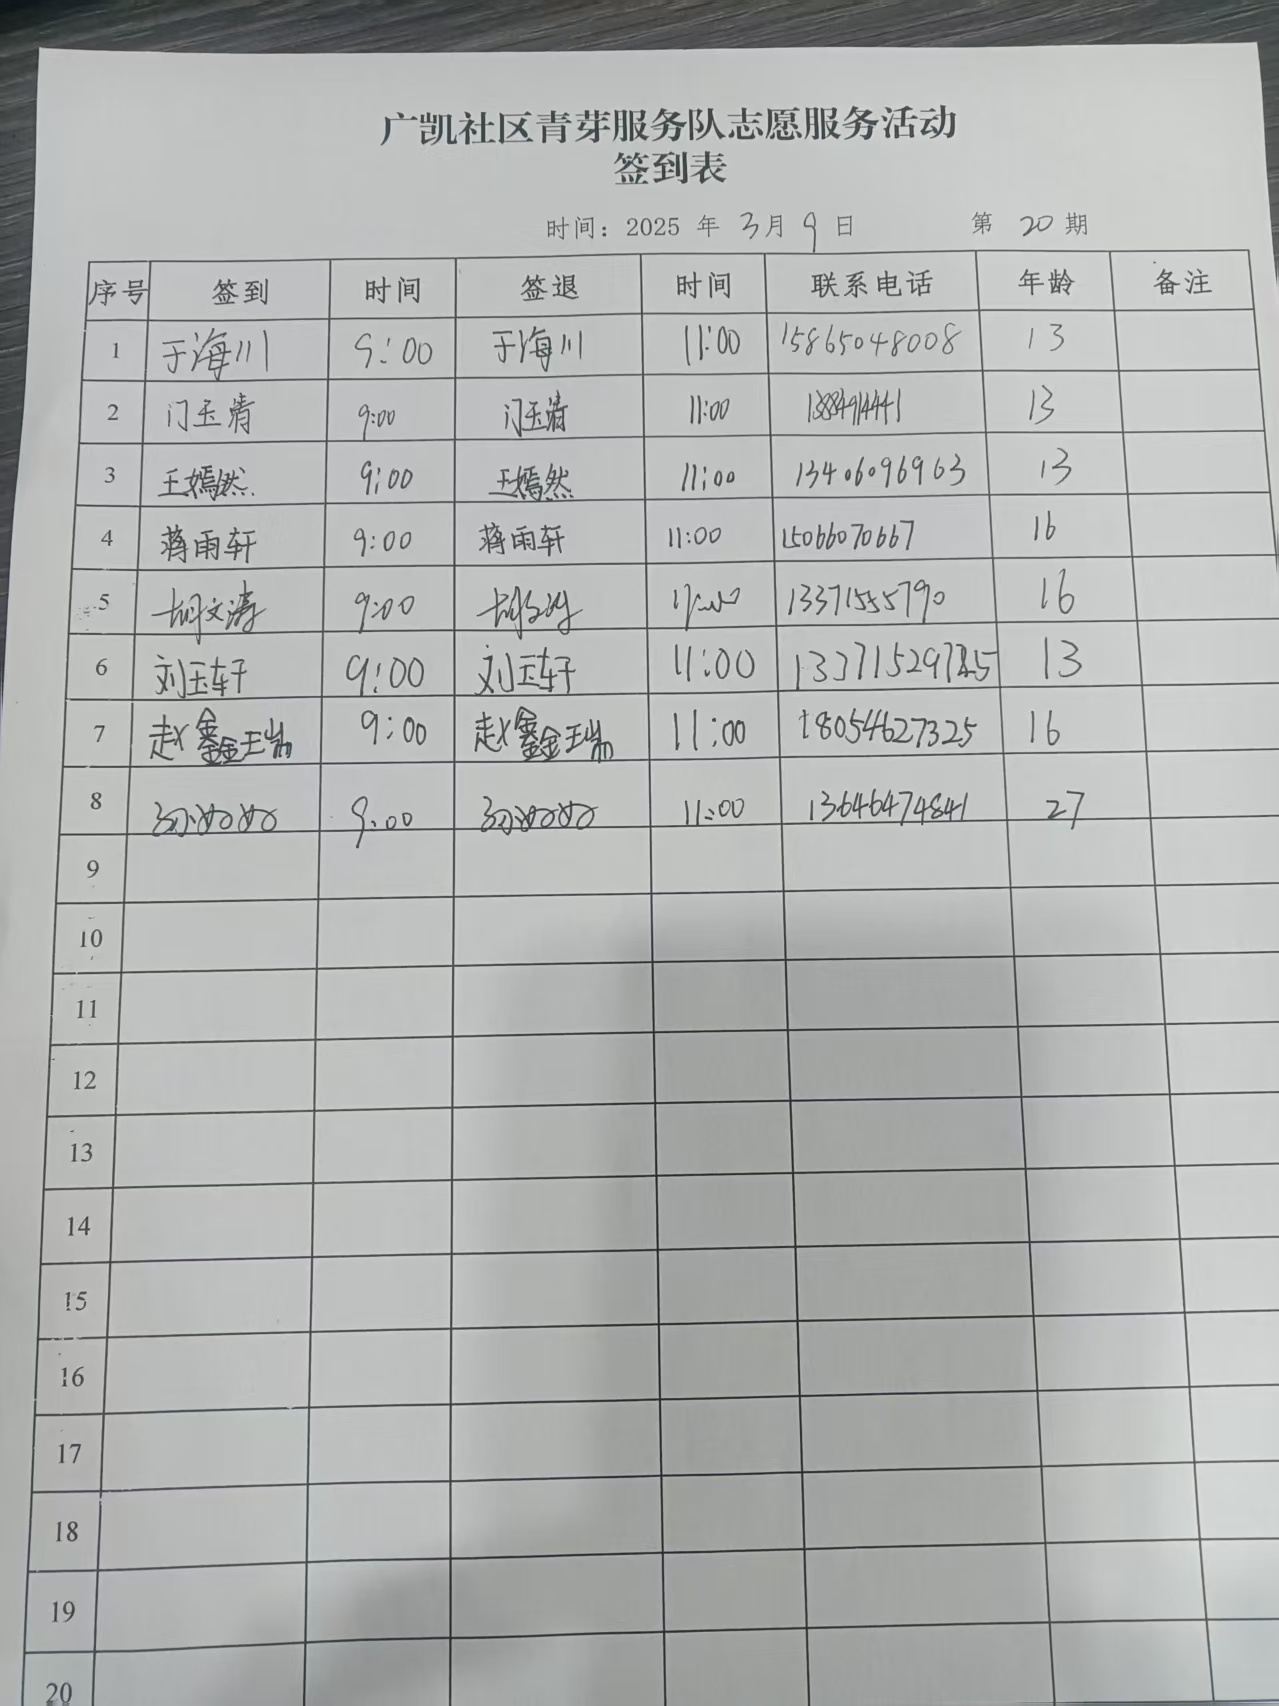 广凯社区青芽服务队志愿服务活动
签到表
时间：2025 年 3月 9 日 第 20 期
序号 签到 时间 签退 时间 联系电话 年龄 备注
1 于海川 9:00 于海川 11:00 15865048008 13
2 门玉清 9:00 门玉清 11:00 13
3 王嫣然 9:00 王嫣然 11:00 13406096963 13
4 蒋雨轩 9:00 蒋雨轩 11:00 15066070667 16
5 胡文涛 9:00 胡文涛 13371555790 16
6 刘玉轩 9:00 刘玉轩 11:00 13
7 赵鑫瑞 9:00 赵鑫瑞 11:00 18054627325 16
8 9:00 11:00 13646474841 27
9
10
11
12
13
14
15
16
17
18
19
20